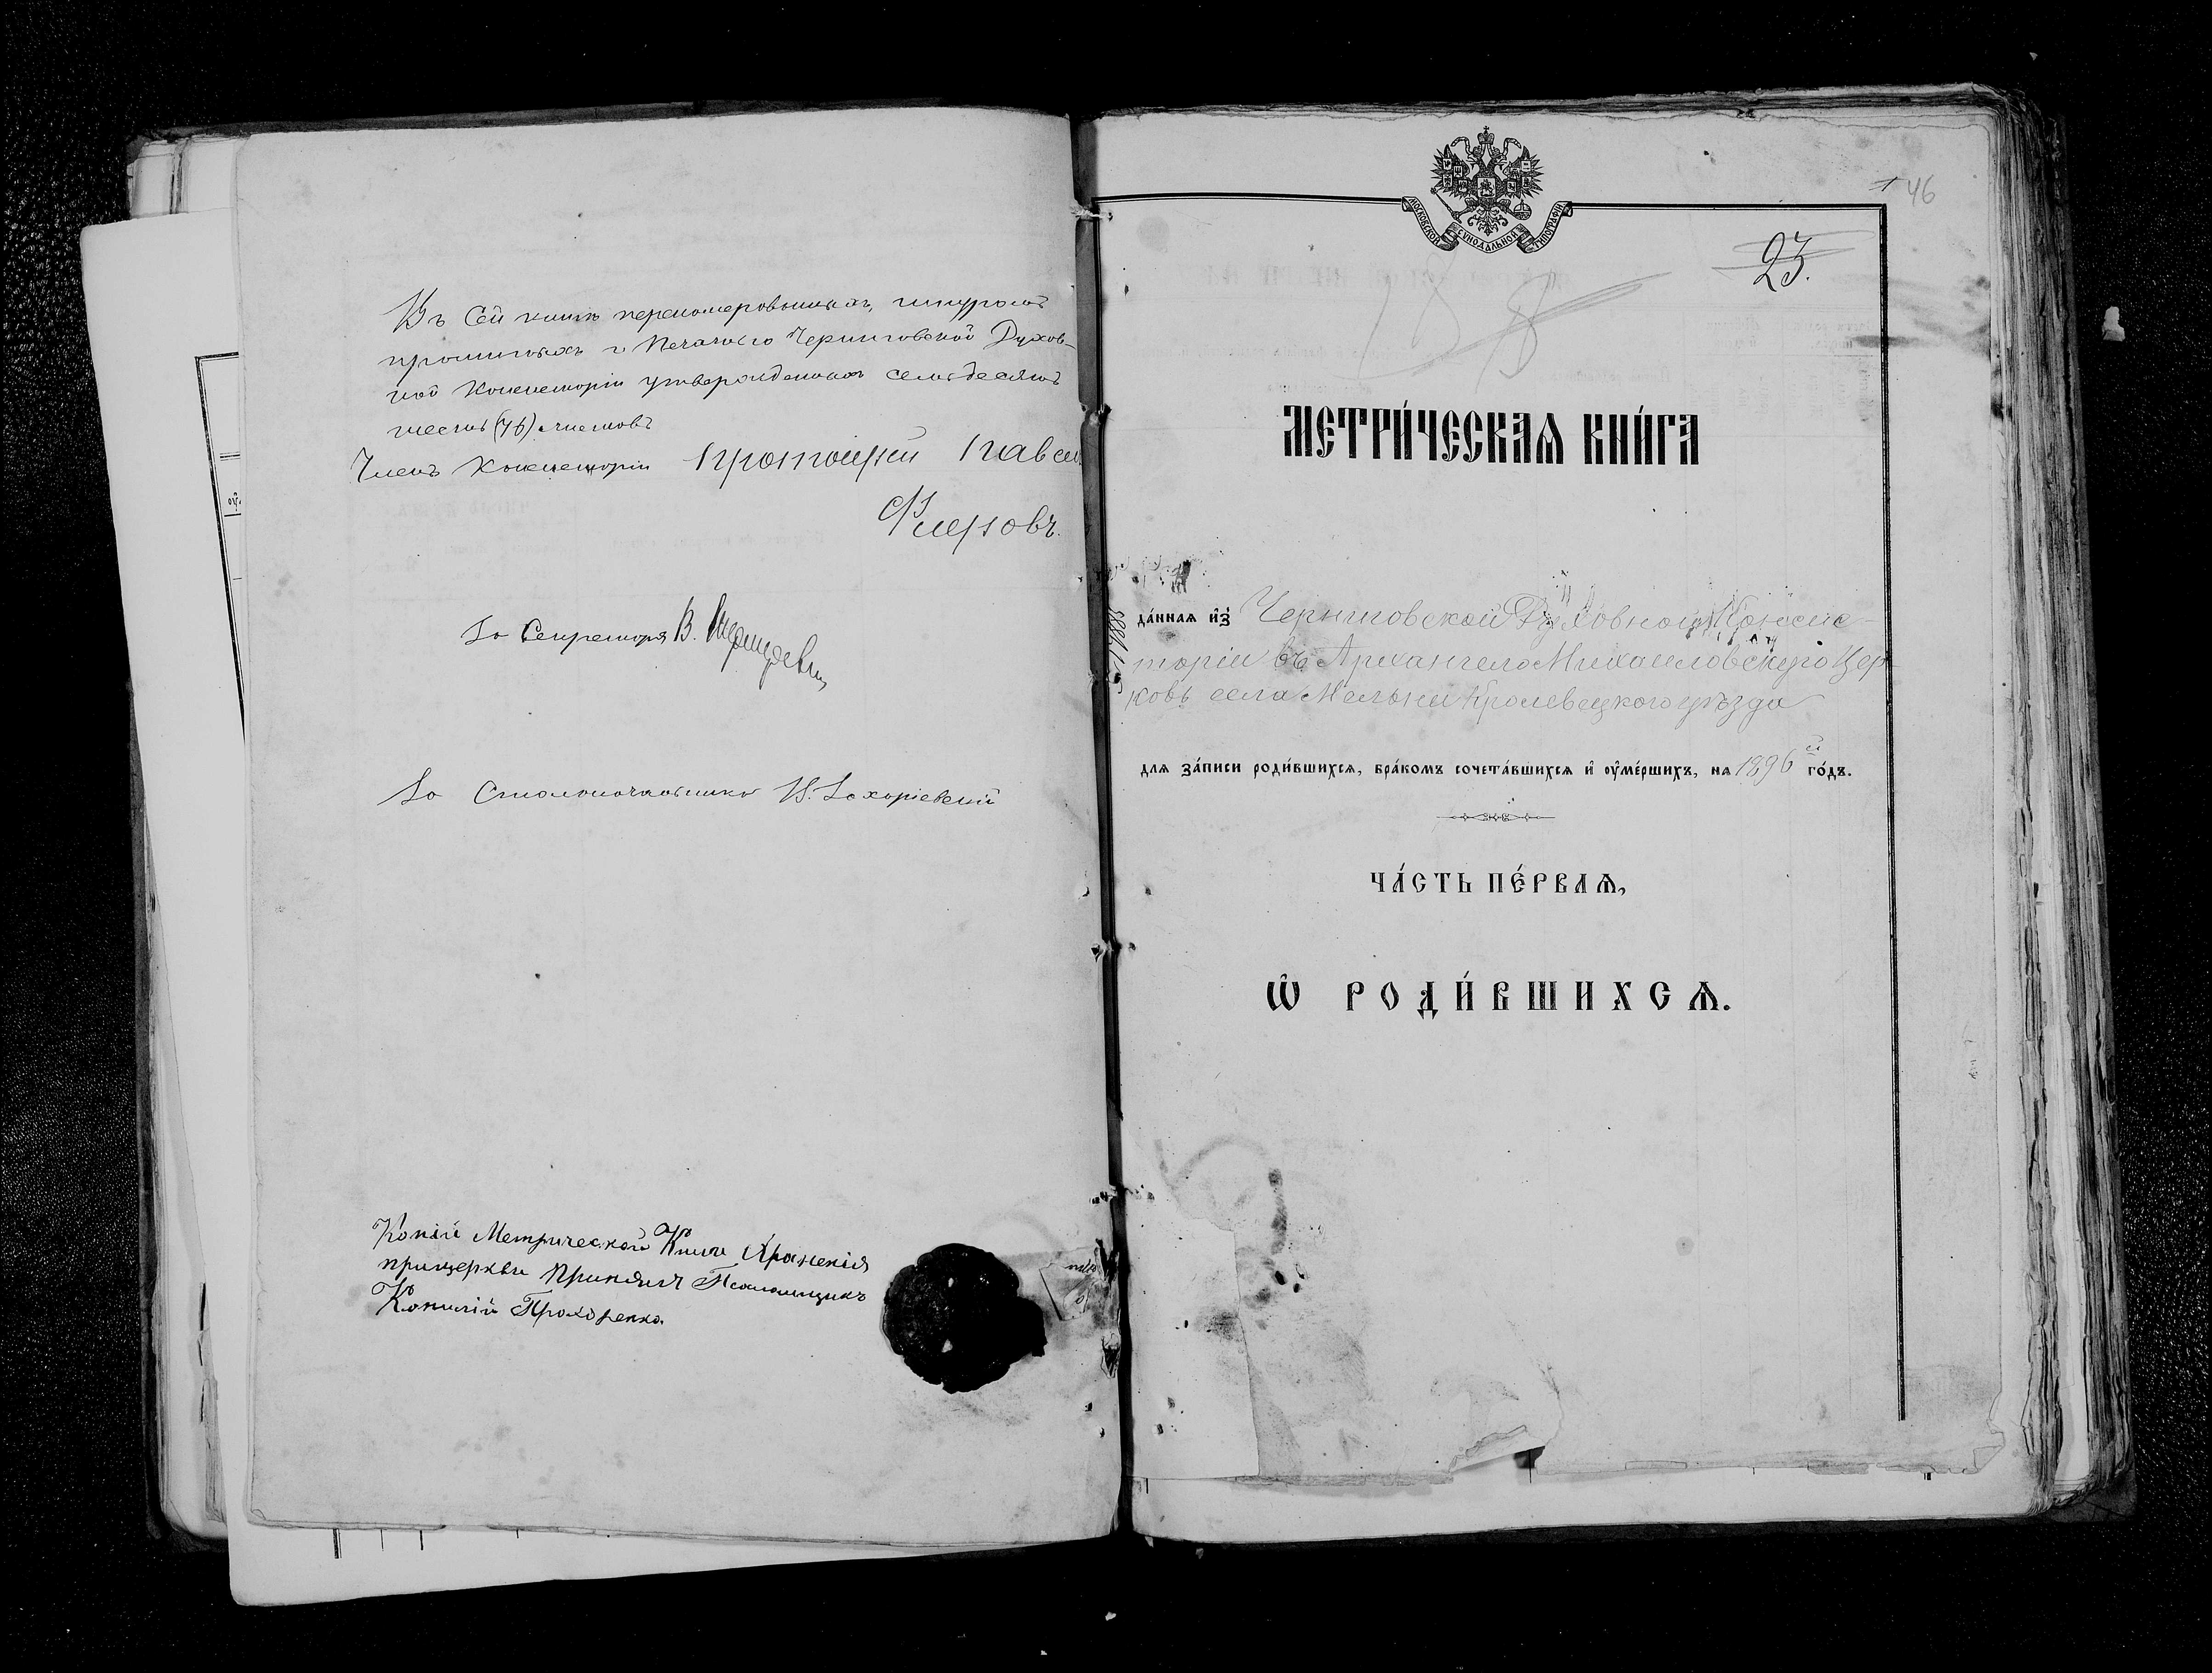 Въ сей книгѣ перенумерованныхъ, шнуромъ
прошитыхъ и печатью Черниговской Духов-
ной Консисторіи утвержденныхъ семьдесятъ
шесть (76) листовъ
Членъ Консисторіи Протоіерей Павелъ
Фіерковъ.
За Секретаря В.
За Столоначальника Н. Захоріевскій
Копій Метрической Книги Храненія
прицеркви Принялъ Псаломщикъ
Прохоренко.
46
МОСКОВСКОЙ СѴНОДАЛЬНОЙ ТИПОГРАФІИ
23.
МЕТРИ́ЧЕСКАѦ КНИ́ГА
да́ннаѧ и҆зъ Черниговской Духовной Консис-
торіи въ Архангело Михайловскую Цер
ковь села Мельни Кролевецкого уѣзда
длѧ за́писи роди́вшихсѧ, бра́комъ сочета́вшихсѧ и҆ ѹ҆ме́ршихъ, на 1896 й го́дъ.
ЧА́СТЬ ПЕ́РВАѦ,
Ѡ҆ РОДИ́ВШИХСѦ.